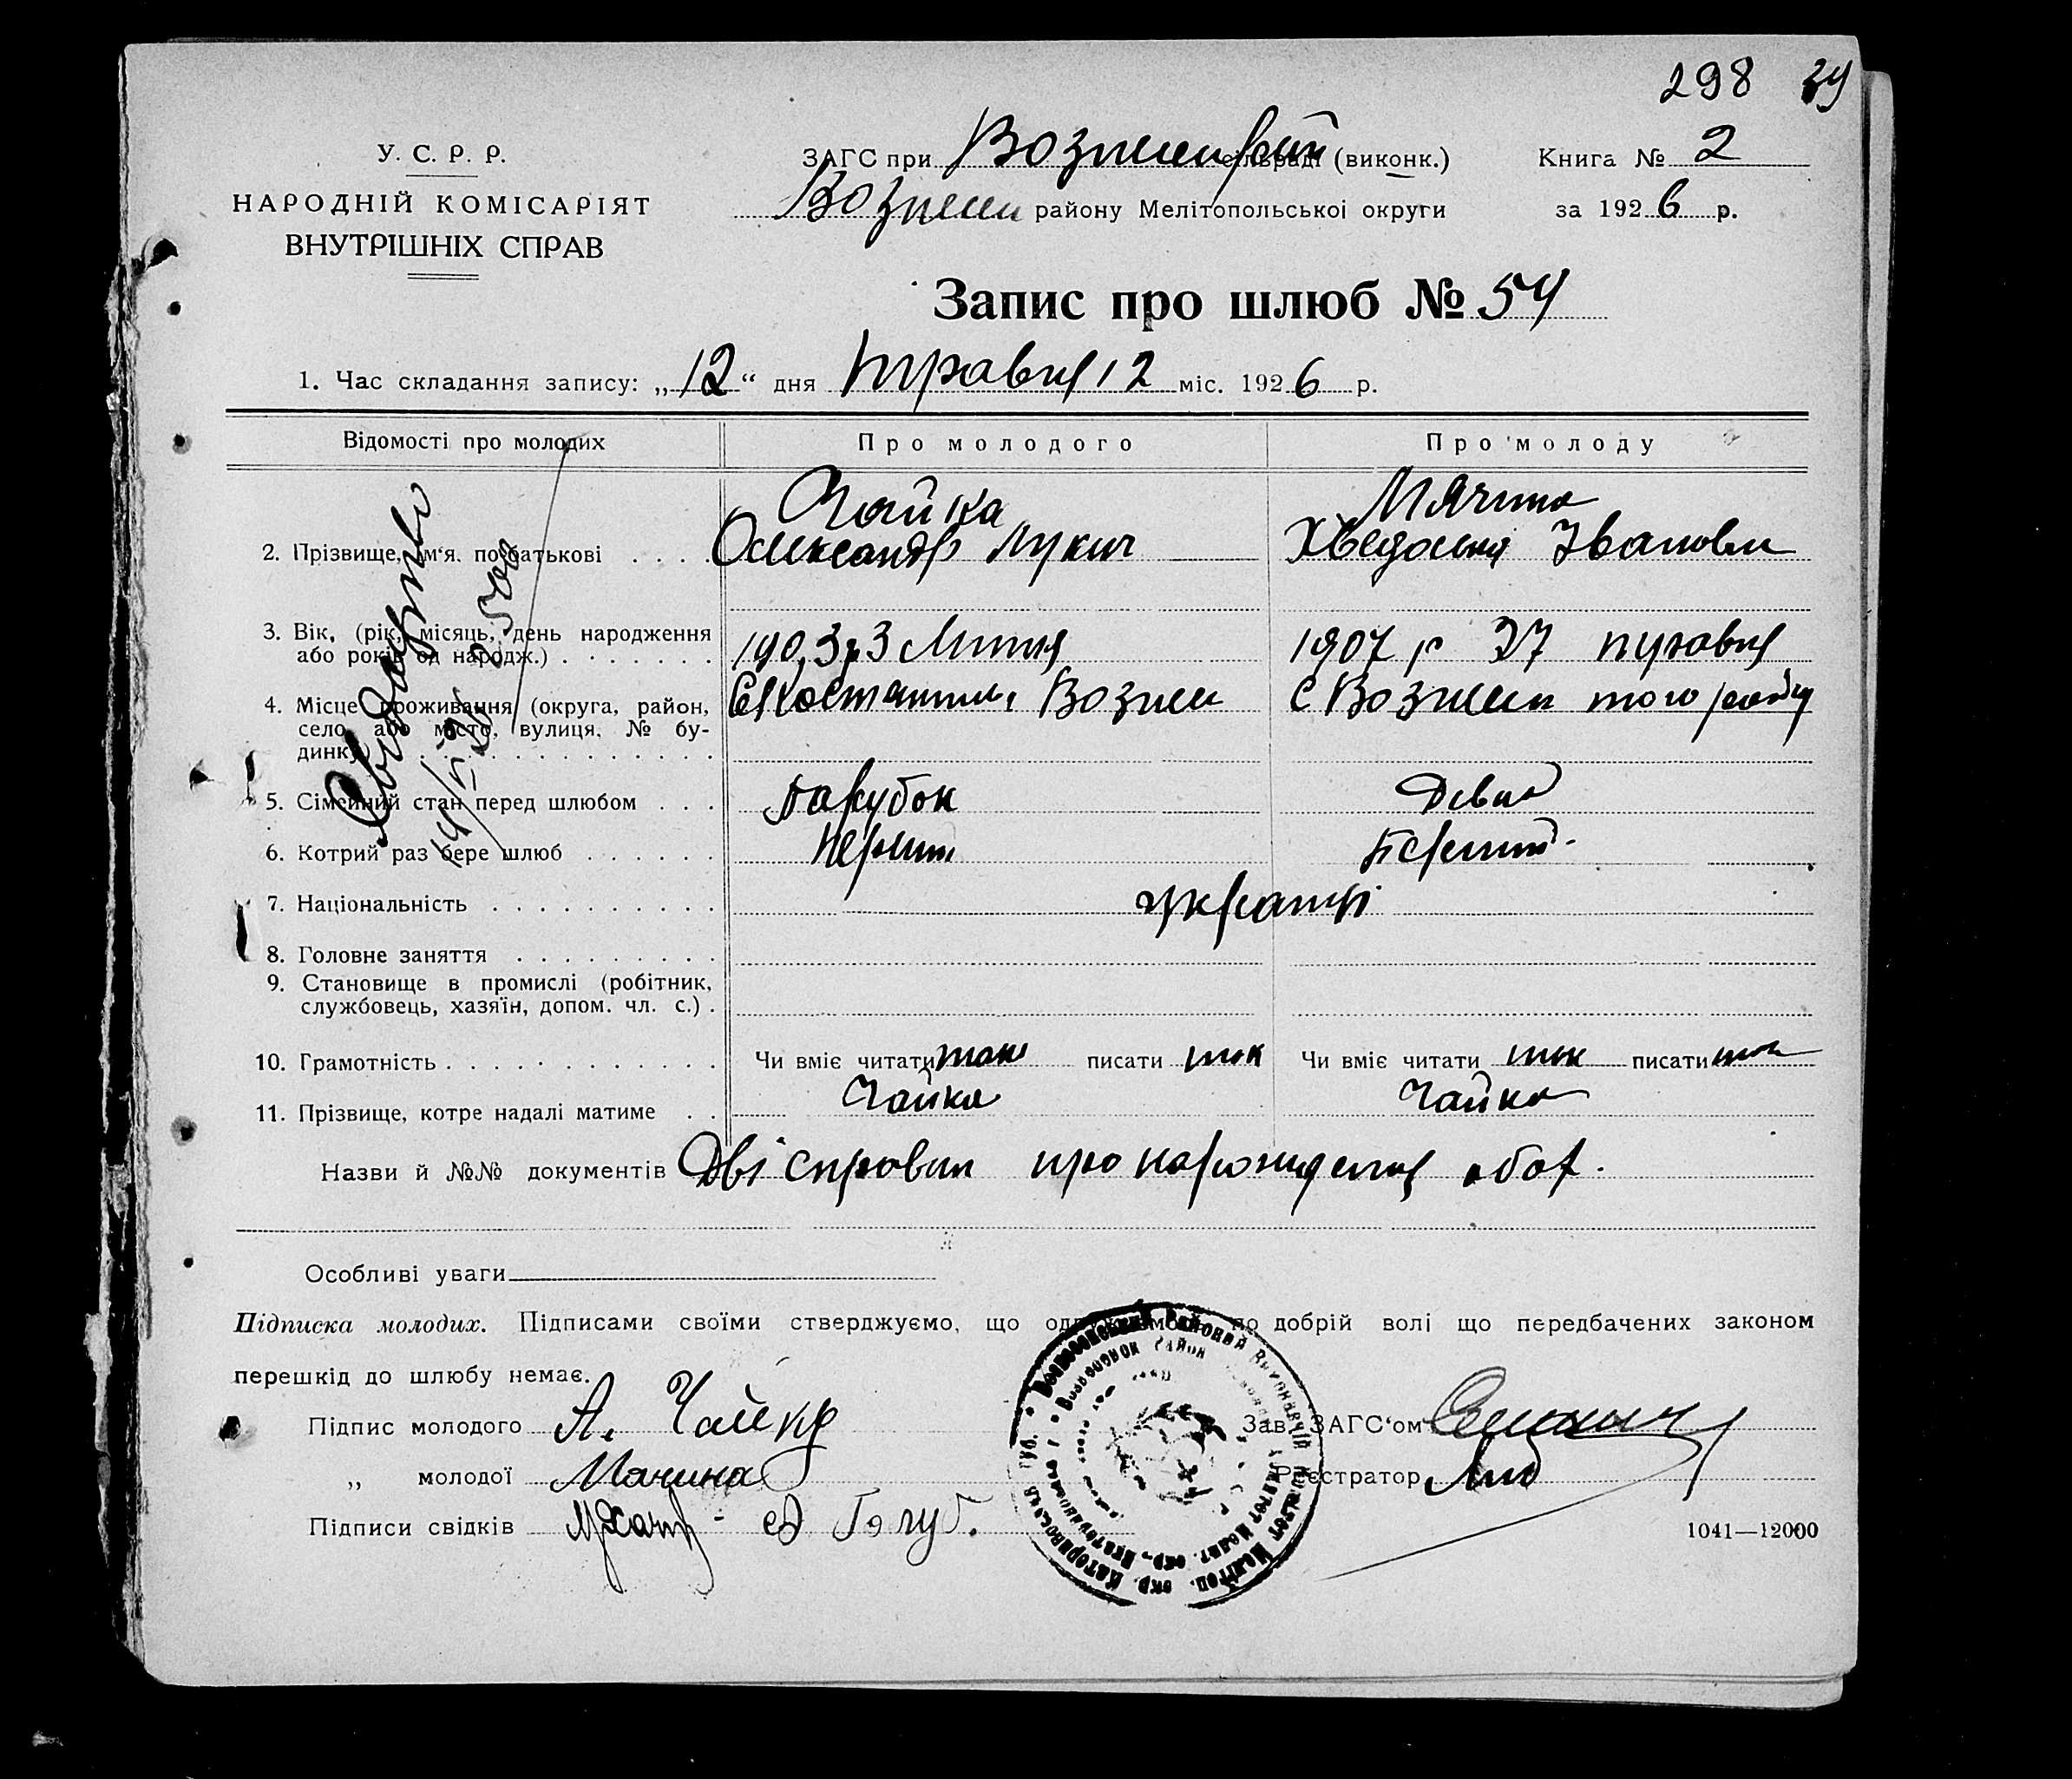 298 39
У. С. Р. Р.
НАРОДНІЙ КОМІСАРІЯТ
ВНУТРІШНІХ СПРАВ
ЗАГС при Вознесен рай сільраді (виконк.)
Вознесен району Мелітопольської округи
Книга № 2
за 1926 р.
Запис про шлюб № 54
1. Час складання запису: „12“ дня травня 12 міс. 1926 р.
Відомості про молодих
Про молодого
Про молоду
2. Прізвище, м'я. по батькові
Чайка
Олександр Лукич
Мячина
Хведосія Івановна
3. Вік, (рік, місяць, день народження
або років од народж.)
1903 р 3 Липня
1907 р 27 травня
4. Місце проживання (округа, район,
село або місто, вулиця, № бу-
динку)
С Костянтин. Вознесен
С Вознесен того району
5. Сімейний стан перед шлюбом
Парубок
Дівка
6. Котрий раз бере шлюб
Перший
Перший
7. Національність
українці
8. Головне заняття
9. Становище в промислі (робітник,
службовець, хазяїн, допом. чл. с.)
10. Грамотність
Чи вміє читати так писати так
Чи вміє читати так писати так
11. Прізвище, котре надалі матиме
Чайка
Чайка
Назви й №№ документів Дві справки про нарождения обох.
Особливі уваги
Підписка молодих. Підписами своїми стверджуємо, що одружуємось по добрій волі що передбачених законом
перешкід до шлюбу немає.
Підпис молодого А. Чайка
„ молодої Мачина
Підписи свідків Голуб.
Зав. ЗАГС'ом
Реєстратор
1041—12000
Свідоцтво